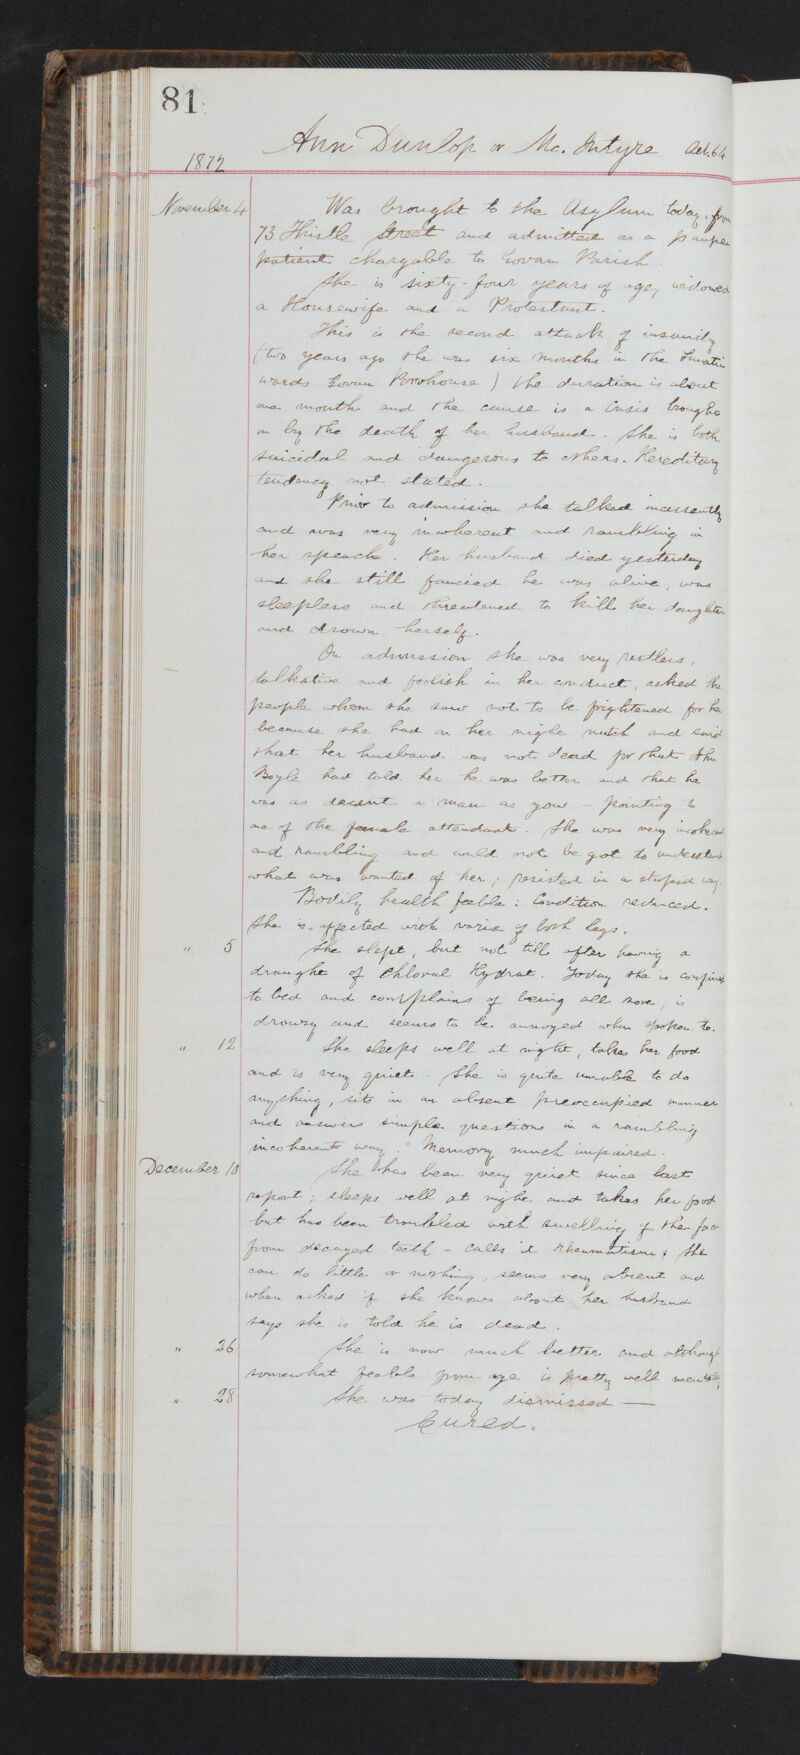 81
Ann Dunlop or Mc.Intyre Aet. 64
1872
November 4 Was brought to the Asylum today, from
73 Thistle Street and admitted as a pauper
patient chargable to Govan Parish.
She is sixty-four years of age, widowed
a Housewife and a Protestant.
This is the second attack of insanity
(two years ago she was six months in the Lunatic
wards Govan Poorhouse) the duration is about
one month and the cause is a Crisis brought
on by the death of her husband. She is both
suicidal and dangerous to others. Hereditary
tendency not stated.
Prior to admission she talked incessantly
and was very incoherent and rambling in
her speach. Her husband died yesterday
and she still fancied he was alive, was
sleepless and threatened to kill her daughter
and drown herself.
On admission she was very restless,
talkative and foolish in her conduct, asked the
people whom she saw not to be frightened for her
because she had on her night mutch and said
that her husband was not dead for that John
Boyle had told her he was better and that he
was as decent a man as you – pointing to
one of the female attendants. She was very incoherent
and rambling and could not be got to understand
what was wanted of her; resisted in a stupid way.
Bodily health feeble: Condition reduced.
She is affected with varix of both legs.
" 5 She slept, but not till after having a
draught of Chloral Hydrat. Today she is confined
to bed and complains of being all sore, is
drowsy and seems to be annoyed when spoken to.
" 12 She sleeps well at night, takes her food
and is very quiet. She is quite unable to do
anything, sits in an absent preoccupied manner
and answers simple questions in a rambling
incoherent way. Memory much impaired.
December 10 She has been very quiet since last
report; sleeps well at night and takes her food
but has been troubled with swelling of the face
from decayed teeth – calls it rheumatism. She
can do little or nothing, seems very absent and
when asked if she knows about her husband
says she is told he is dead.
" 26 She is now much better and although
somewhat feeble from age is pretty well mentally
" 28 She was today dismissed —
Cured.